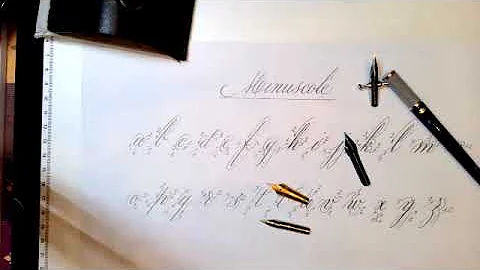 Minuscole
a b c d e f g h i j k l m
o p q r s t u v w x y z